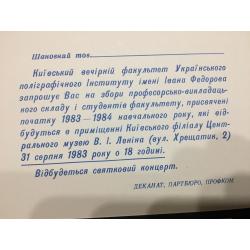 Шановний тов.
Київський вечірній факультет Українського
поліграфічного Інституту імені Івана Федорова
запрошує Вас на збори професорсько-викладаць-
кого складу і студентів факультету, присвячені
початку 1983—1984 навчального року, які від-
будуться в приміщенні Київського філіалу Цент-
рального музею В. І. Леніна (вул. Хрещатик, 2)
31 серпня 1983 року о 18 годині.
Відбудеться святковий концерт.
ДЕКАНАТ, ПАРТБЮРО, ПРОФКОМ